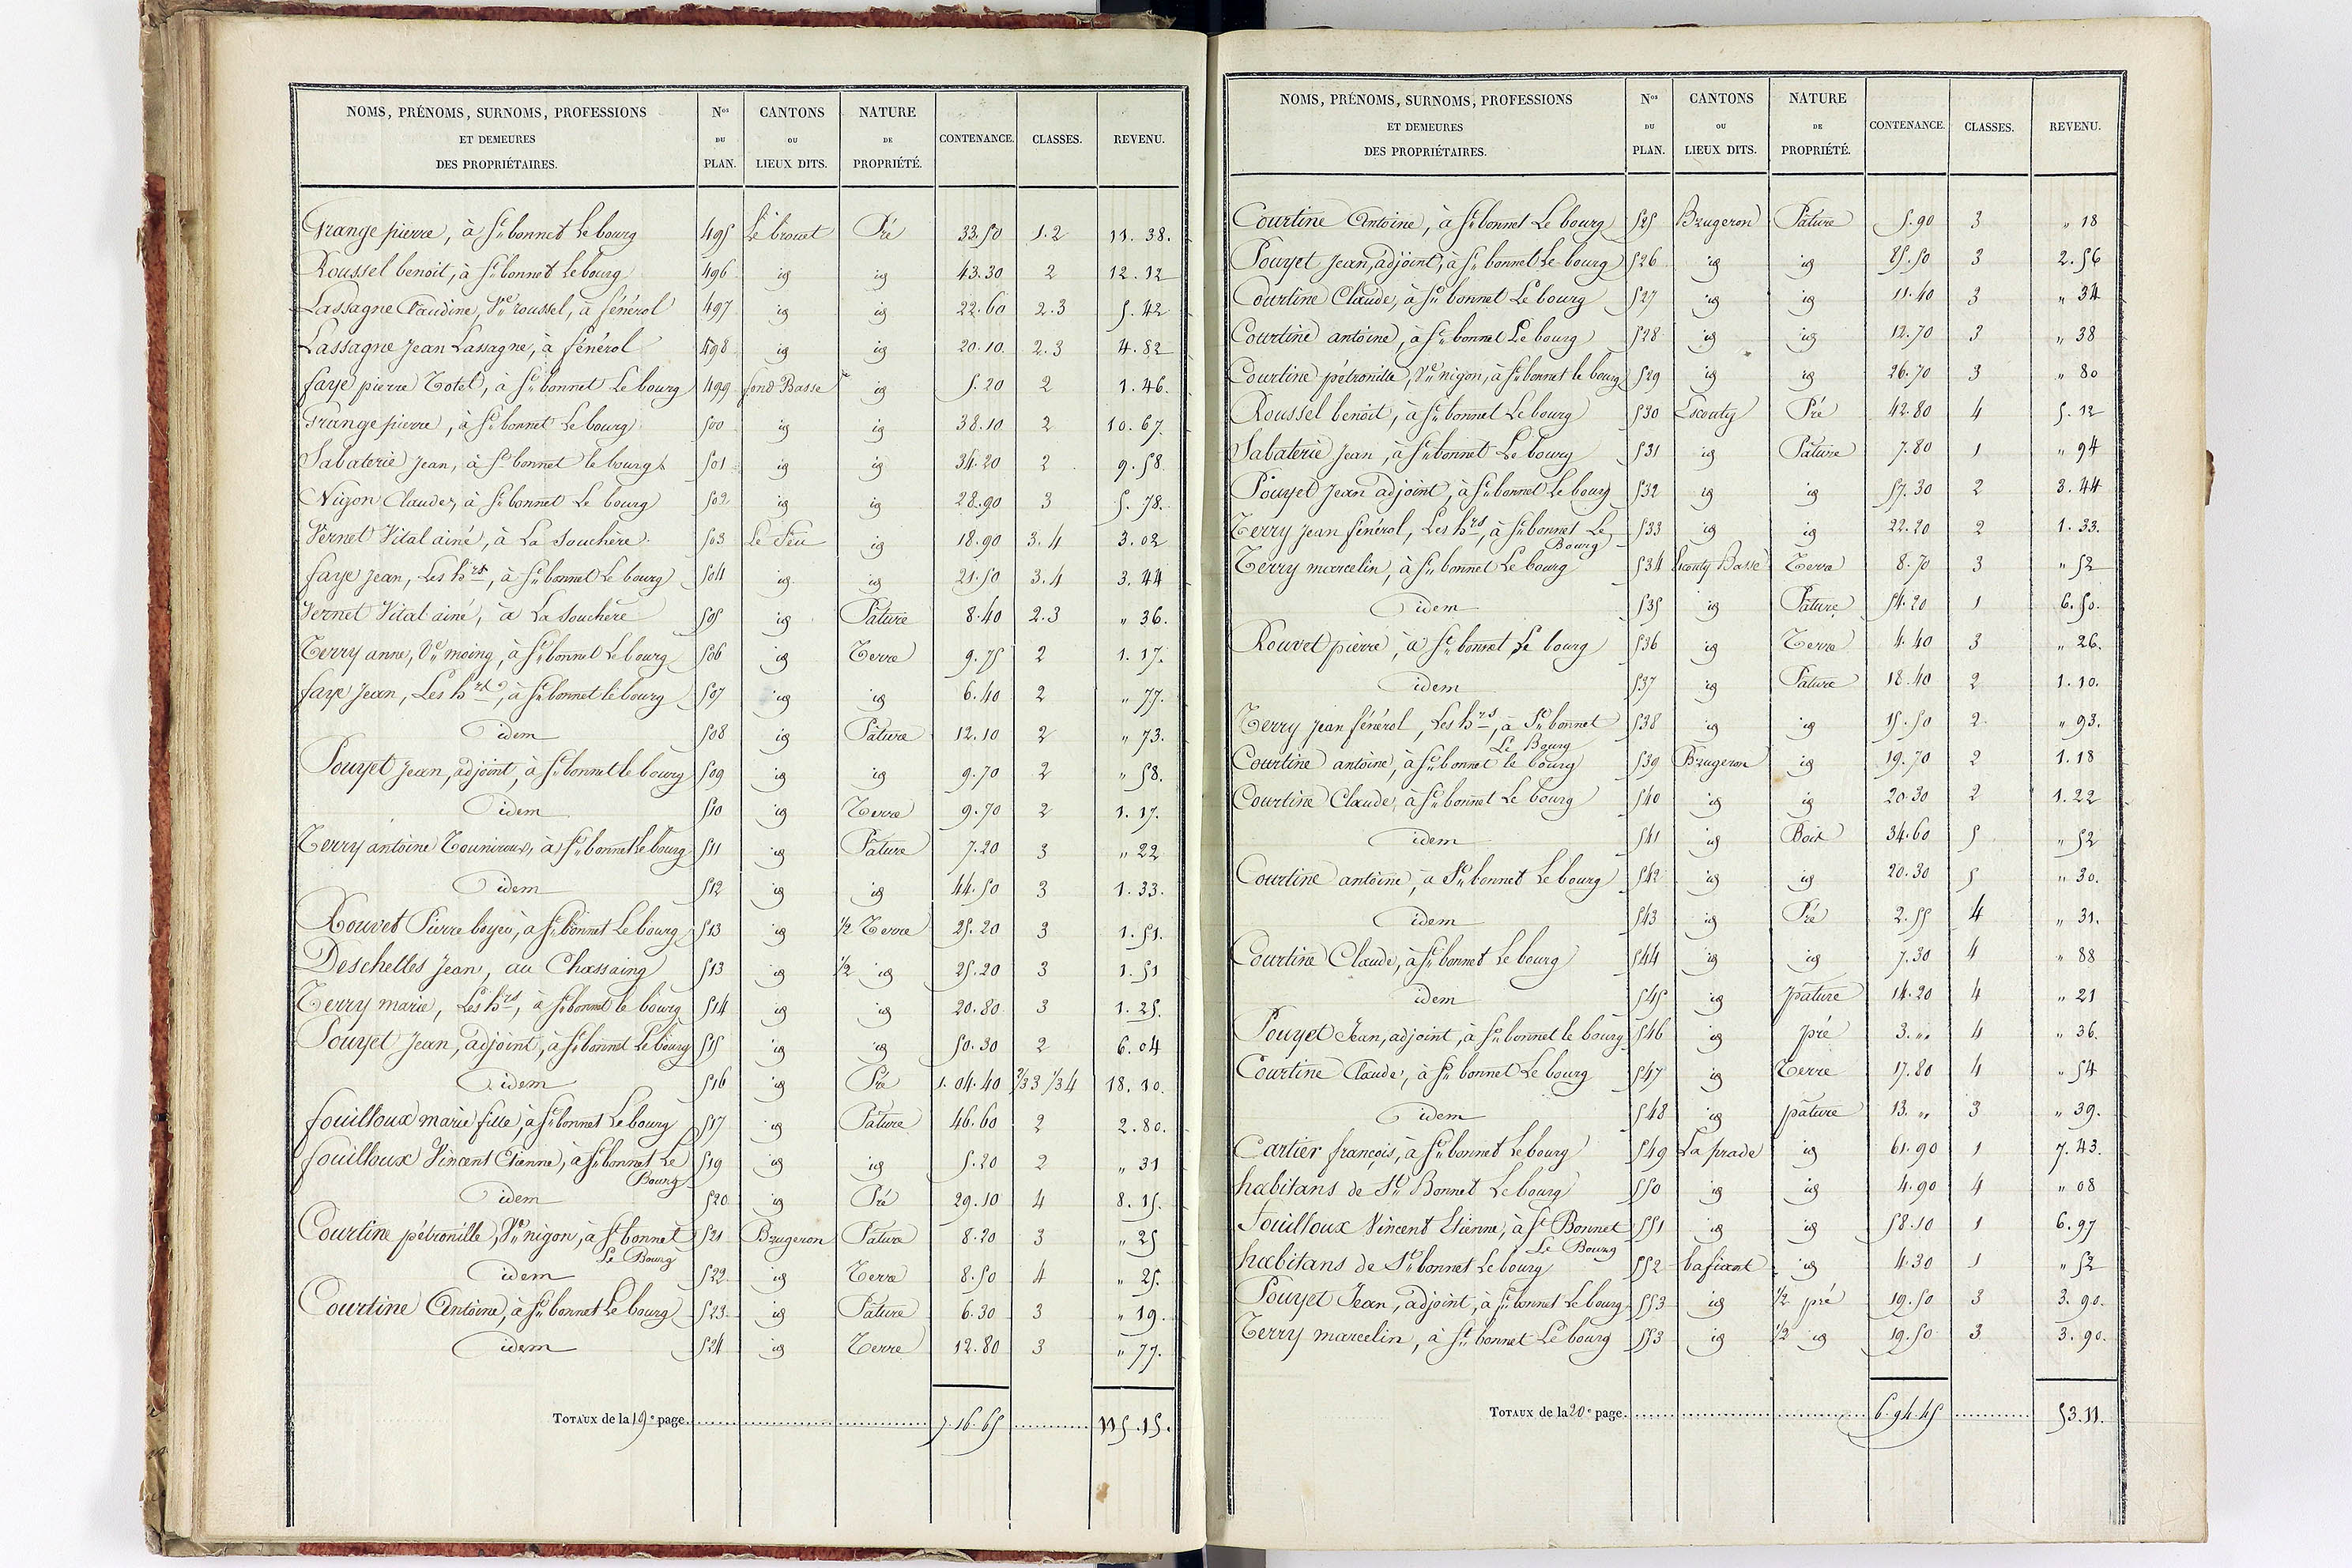 NOMS, PRÉNOMS, SURNOMS, PROFESSIONS ET DEMEURES DES PROPRIÉTAIRES. Nos DU PLAN. CANTONS OU LIEUX DITS. NATURE DE PROPRIÉTÉ. CONTENANCE. CLASSES. REVENU.
Grange pierre, à St bonnet Le bourg 495 Le brouet Pré 33.50 1.2 11.38.
Roussel benoit, à St bonnet Le bourg 496 id id 43.30 2 12.12
Lassagne Claudine, Ve roussel, à fénérol 497 id id 22.60 2.3 5.42
Lassagne Jean Lassagne, à fénérol 498 id id 20.10 2.3 4.82
faye pierre Totel, à St bonnet Le bourg 499 fond Basse id 5.20 2 1.46.
Grange pierre, à St bonnet Le bourg 500 id id 38.10 2 10.67.
Sabaterie Jean, à St bonnet le bourg 501 id id 34.20 2 9.58
Nigon Claude, à St bonnet Le bourg 502 id id 28.90 3 5.78.
Vernet Vital ainé, à La Souchère 503 Le Feu id 18.90 3.4 3.02
faye Jean, Les hrs, à St bonnet Le bourg 504 id id 21.50 3.4 3.44
Vernet Vital ainé, à La Souchère 505 id Pature 8.40 2.3 " 36.
Terry anne, Ve moing, à St bonnet Le bourg 506 id Terre 9.75 2 1.17.
faye Jean, Les hrs, à St bonnet le bourg 507 id id 6.40 2 " 77.
idem 508 id Pature 12.10 2 " 73.
Pouyet Jean, adjoint, à St bonnet le bourg 509 id id 9.70 2 " 58.
idem 510 id Terre 9.70 2 1.17.
Terry antoine, à St bonnet Le bourg 511 id Pature 7.20 3 " 22
idem 512 id id 44.50 3 1.33.
Rouvet Pierre boyer, à St bonnet Le bourg 513 id 1/2 Terre 25.20 3 1.51.
Deschelles Jean, au Chassaing 513 id 1/2 id 25.20 3 1.51
Terry marie, Les hrs, à St bonnet le bourg 514 id id 20.80 3 1.25.
Pouyet Jean, adjoint, à St bonnet Le bourg 515 id id 50.30 2 6.04
idem 516 id Pré 1.04.40 2/3 3 1/3 4 18.10.
fouilloux marie fille, à St bonnet Le bourg 517 id Pature 46.60 2 2.80.
fouilloux Vincent Etienne, à St bonnet Le Bourg 519 id id 5.20 2 " 31
idem 520 id Pré 29.10 4 8.15.
Courtine pétronille, Ve nigon, à St bonnet Le Bourg 521 Brugeron Pature 8.20 3 " 25
idem 522 id Terre 8.50 4 " 25.
Courtine Antoine, à St bonnet Le bourg 523 id Pature 6.30 3 " 19.
idem 524 id Terre 12.80 3 " 77.
TOTAUX de la 19e page 7.16.65 115.15.
NOMS, PRÉNOMS, SURNOMS, PROFESSIONS ET DEMEURES DES PROPRIÉTAIRES. Nos DU PLAN. CANTONS OU LIEUX DITS. NATURE DE PROPRIÉTÉ. CONTENANCE. CLASSES. REVENU.
Courtine Antoine, à St bonnet Le bourg 525 Brugeron Pature 5.90 3 " 18
Pouyet Jean, adjoint, à St bonnet Le bourg 526 id id 85.50 3 2.56
Courtine Claude, à St bonnet Le bourg 527 id id 11.40 3 " 34
Courtine antoine, à St bonnet Le bourg 528 id id 12.70 3 " 38
Courtine pétronille, Ve nigon, à St bonnet le bourg 529 id id 26.70 3 " 80
Roussel benoit, à St bonnet Le bourg 530 Lscouty Pré 42.80 4 5.12
Sabaterie Jean, à St bonnet Le bourg 531 id Pature 7.80 1 " 94
Pouyet Jean adjoint, à St bonnet Le bourg 532 id id 57.30 2 3.44
Terry Jean fénérol, Les hrs, à St bonnet Le Bourg 533 id id 22.20 2 1.33.
Terry marcelin, à St bonnet Le bourg 534 Lscouty Basse Terre 8.70 3 " 52
idem 535 id Pature 54.20 1 6.50.
Rouvet pierre, à St bonnet Le bourg 536 id Terre 4.40 3 " 26.
idem 537 id Pature 18.40 2 1.10.
Terry Jean fénérol, Les hrs, à St bonnet Le Bourg 538 id id 15.50 2 " 93.
Courtine antoine, à St bonnet le bourg 539 Brugeron id 19.70 2 1.18
Courtine Claude, à St bonnet Le bourg 540 id id 20.30 2 1.22
idem 541 id Bois 34.60 5 " 52
Courtine antoine, à St bonnet Le bourg 542 id id 20.30 5 " 30.
idem 543 id Pré 2.55 4 " 31.
Courtine Claude, à St bonnet Le bourg 544 id id 7.30 4 " 88
idem 545 id pature 14.20 4 " 21
Pouyet Jean, adjoint, à St bonnet le bourg 546 id pré 3. " 4 " 36.
Courtine Claude, à St bonnet Le bourg 547 id Terre 17.80 4 " 54
idem 548 id pature 13. " 3 " 39.
Cartier françois, à St bonnet Le bourg 549 La prade id 61.90 1 7.43.
habitans de St Bonnet Le bourg 550 id id 4.90 4 " 08
Fouilloux Vincent Etienne, à St Bonnet Le Bourg 551 id id 58.10 1 6.97
habitans de St bonnet Le bourg 552 id 4.30 1 " 52
Pouyet Jean, adjoint, à St bonnet Le bourg 553 id 1/2 pré 19.50 3 3.90.
Terry marcelin, à St bonnet Le bourg 553 id 1/2 id 19.50 3 3.90.
TOTAUX de la 20e page 6.94.45 53.11.